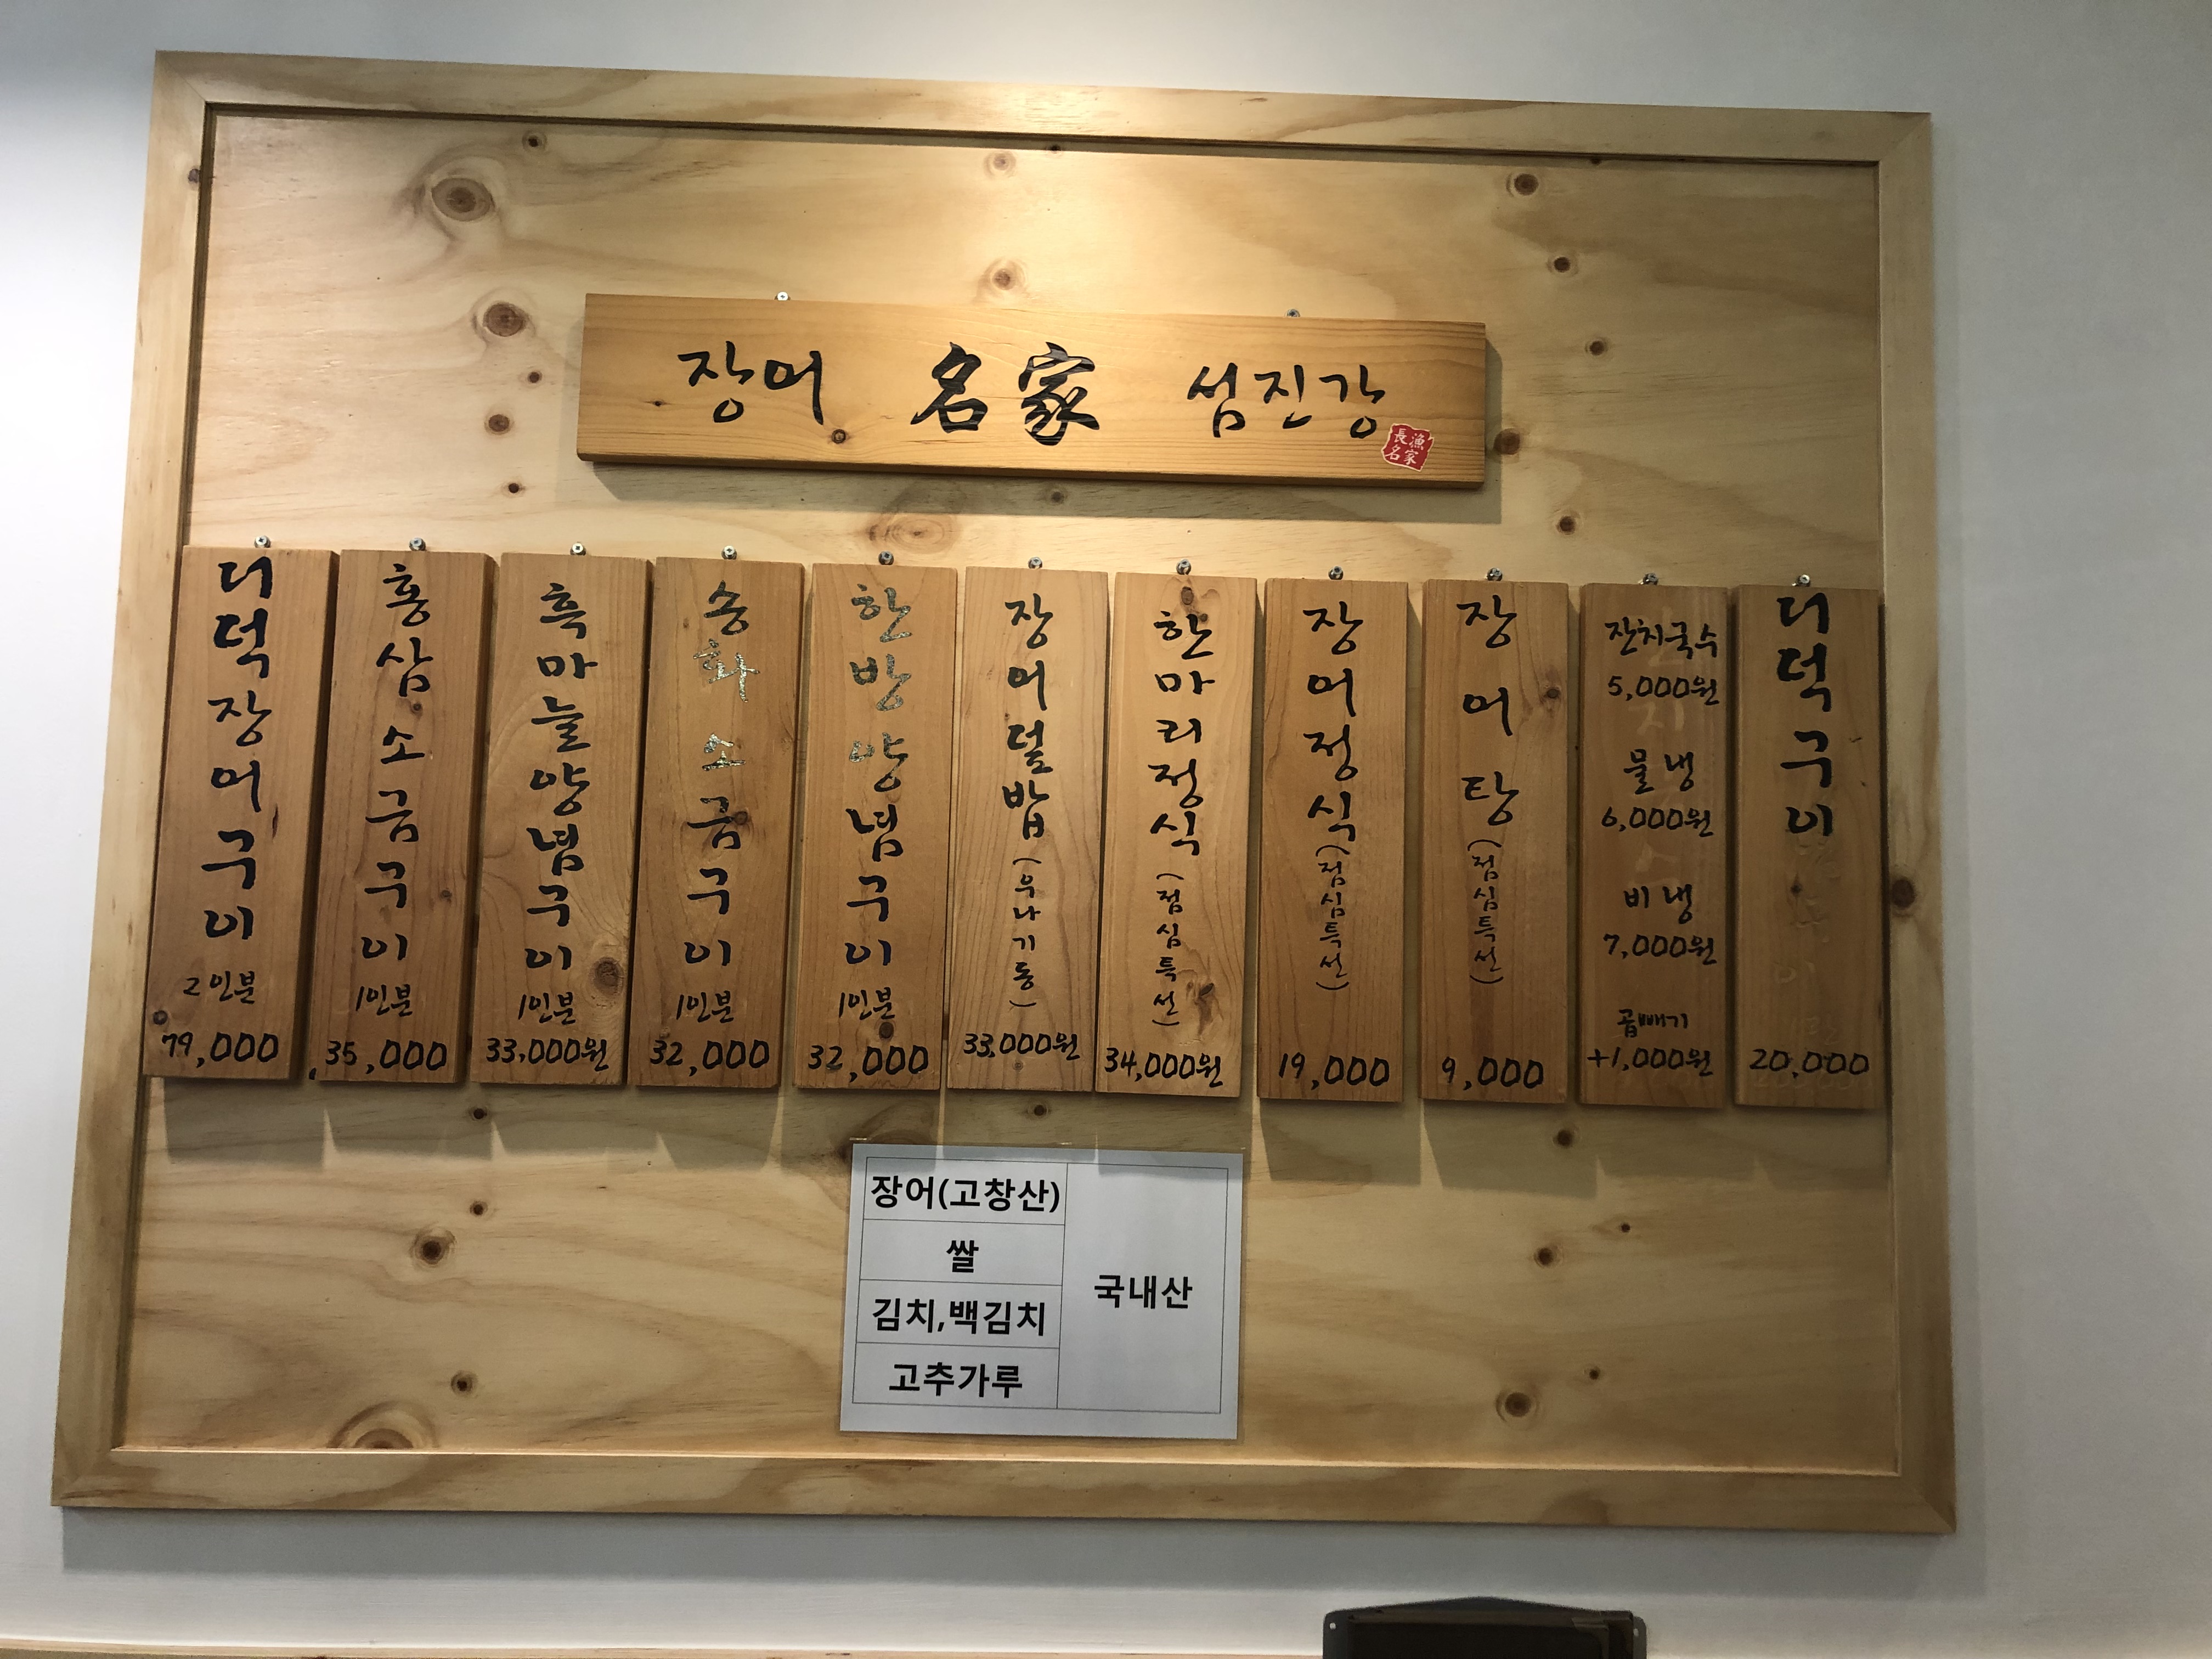 장어 名家 섬진강
長漁
名家
더덕장어구이
2인분
79,000
홍삼소금구이
1인분
35,000
흑마늘양념구이
1인분
33,000원
송화소금구이
1인분
32,000
한방양념구이
1인분
32,000
장어덮밥(우나기동)
33,000원
한마리정식(점심특선)
34,000원
장어정식(점심특선)
19,000
장어탕(점심특선)
9,000
잔치국수
5,000원
물냉
6,000원
비냉
7,000원
곱빼기
+1,000원
더덕구이
20,000
장어(고창산)
쌀
김치,백김치
고추가루
국내산